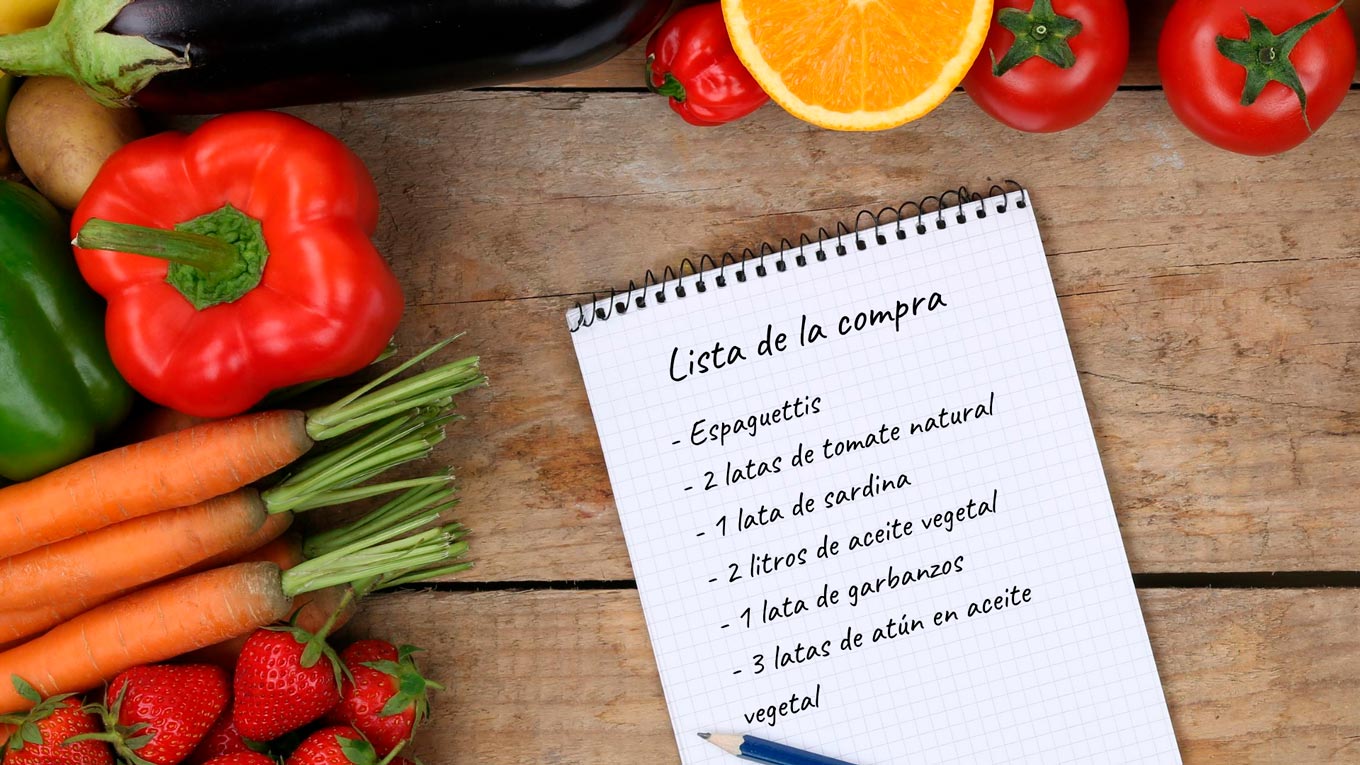 Lista de la compra
- Espaguettis
- 2 latas de tomate natural
- 1 lata de sardina
- 2 litros de aceite vegetal
- 1 lata de garbanzos
- 3 latas de atún en aceite
vegetal